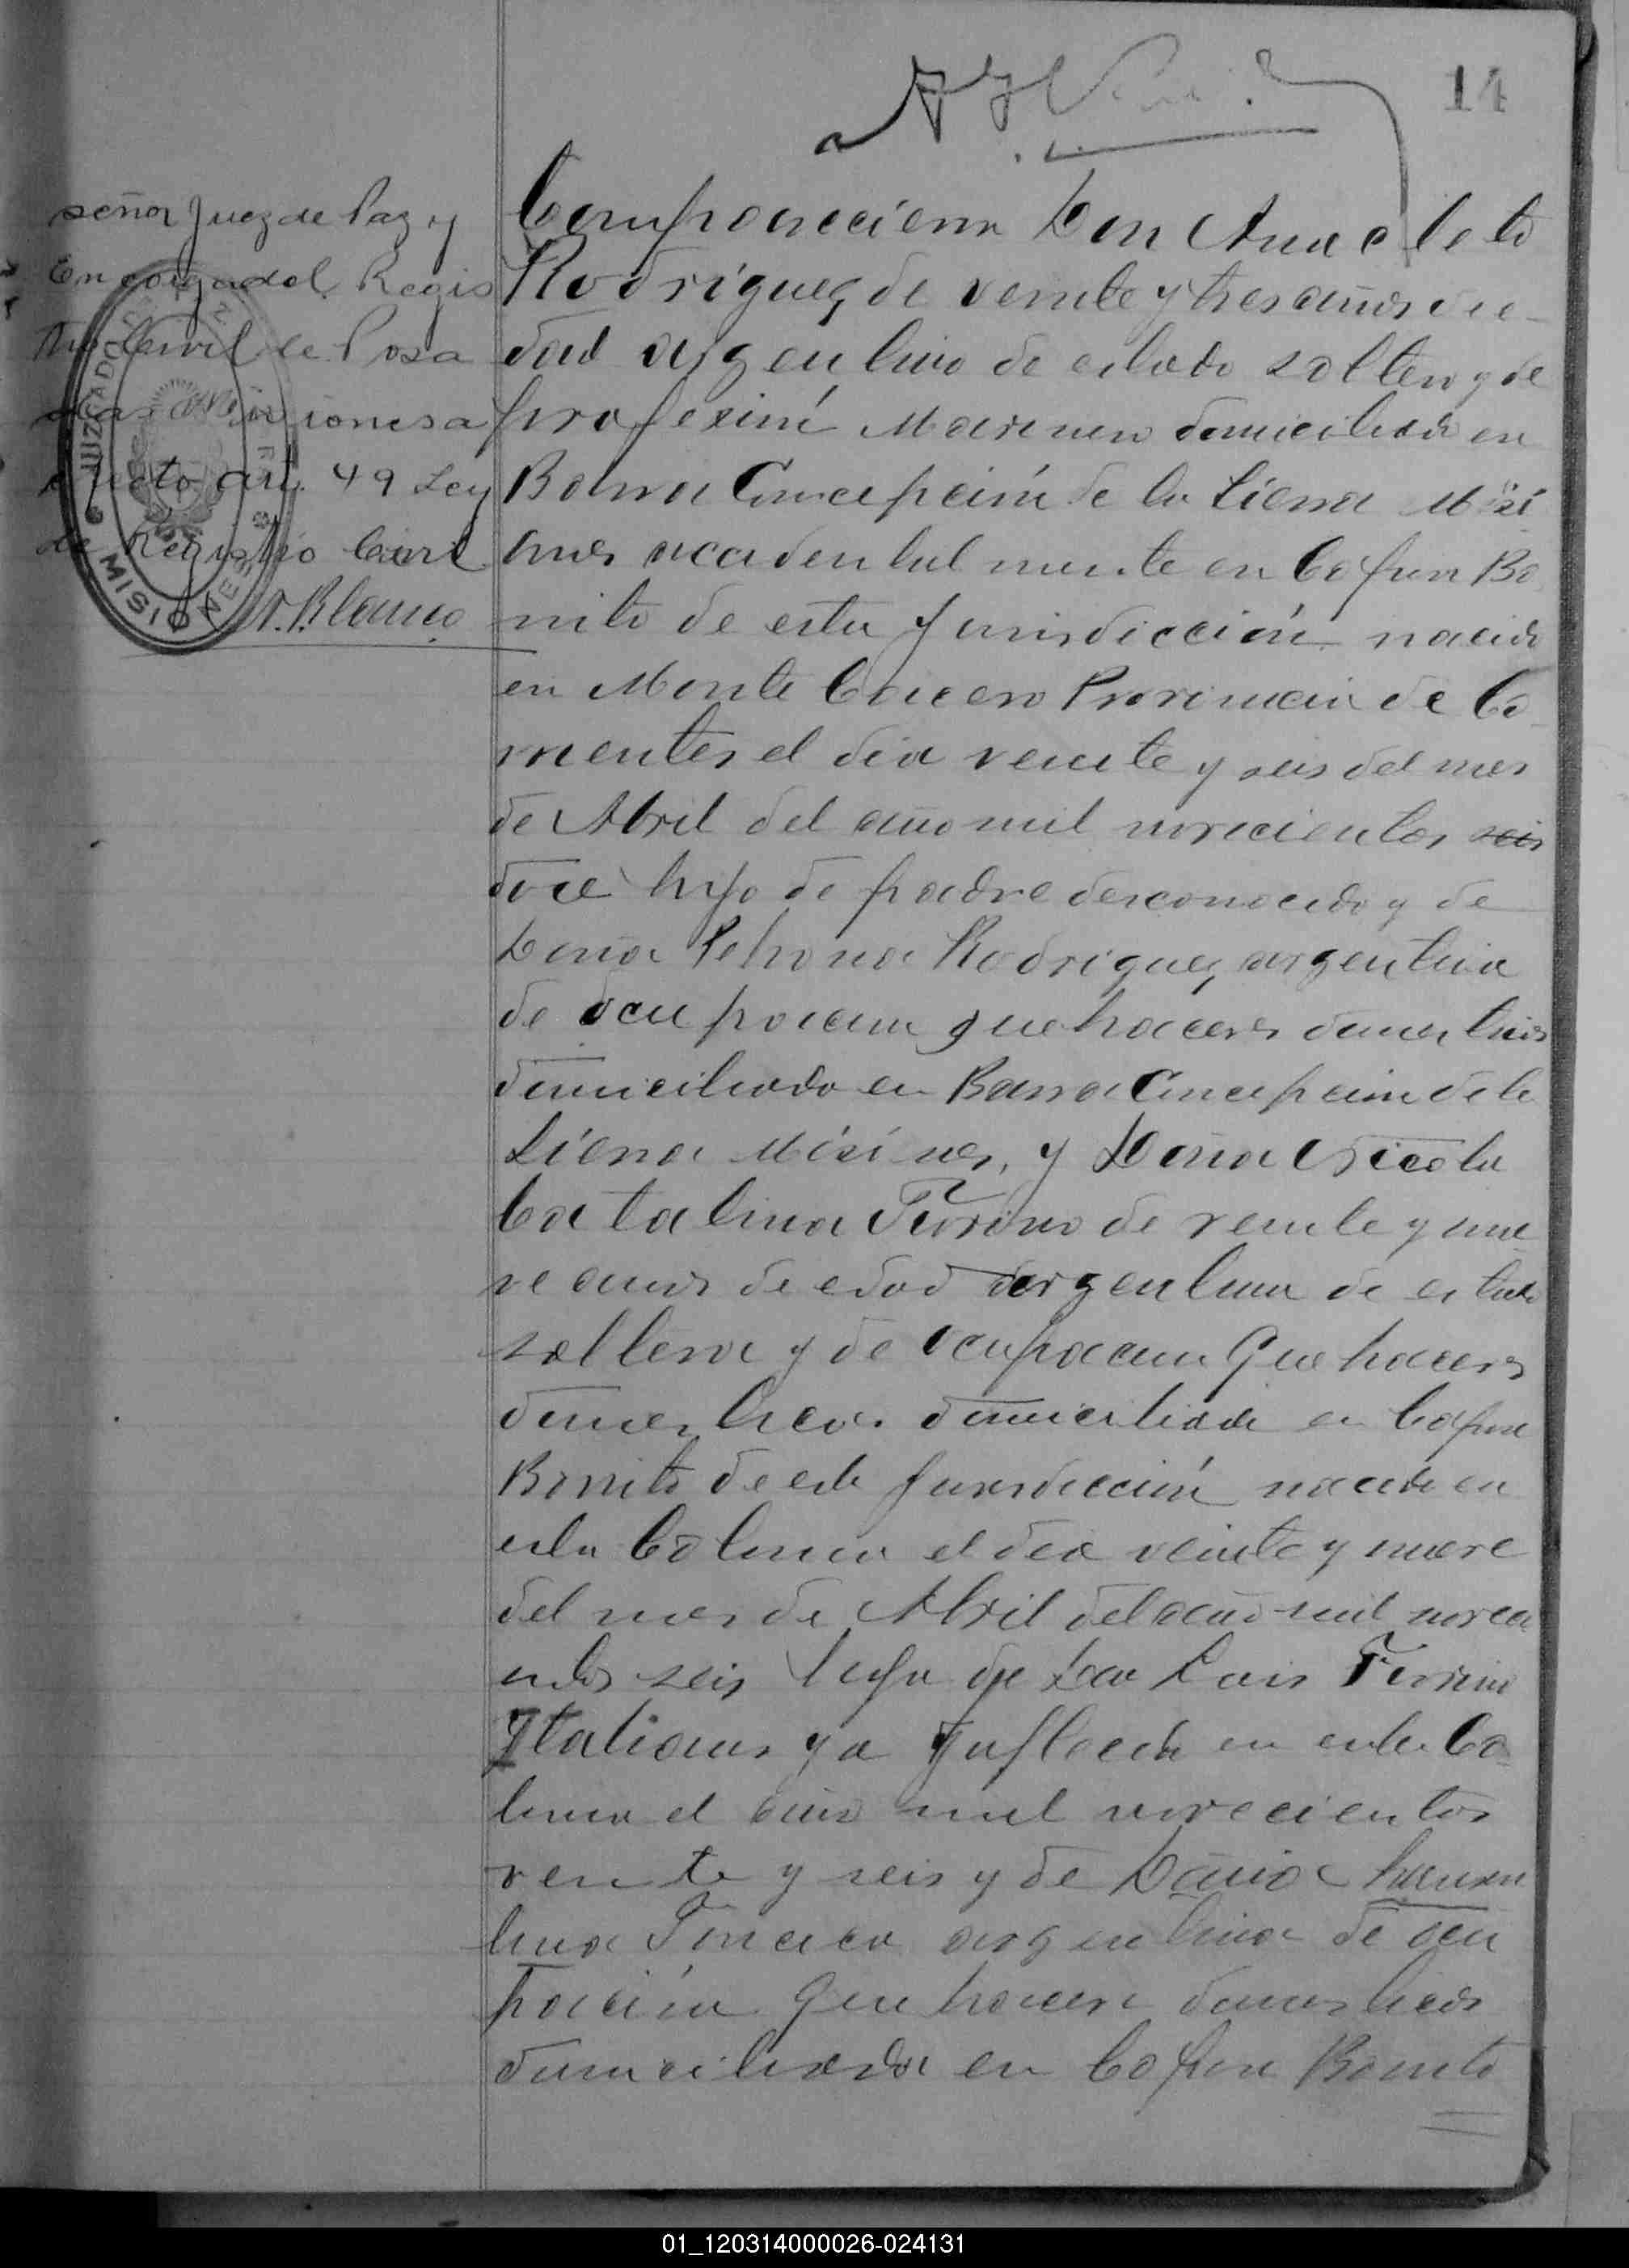 14
señor Juez de Paz y
Encargado del Regis
tro Civil de Posa
das Misiones a
efecto art. 49 Ley
de Registro Civil
A. Blanco
JUZGADO DE PAZ
MISIONES
Comparecieron Don Anacleto
Rodriguez de veinte y tres años de e-
dad argentino de estado soltero y de
profesión Marinero domiciliado en
Barra Concepción de la Sierra Misi
ones accidentalmente en Cafun Bo
nito de esta Jurisdicción nacido
en Monte Cacero Provincia de Co
rrientes el dia veinte y seis del mes
de Abril del año mil novecientos seis
doce hijo de padre desconocido y de
Doña Petrona Rodriguez argentina
de ocupacion quehaceres domesticos
domiciliada en Barra Concepcion de la
Sierra Misiones, y Doña Nicola
Catalina de veinte y nue
ve años de edad argentina de estado
soltera y de ocupacion Quehaceres
domesticos domiciliada en Cafun
Bonito de esta Jurisdicción nacida en
esta Colonia el dia veinte y nueve
del mes de Abril del año mil noveci
entos seis hija de Don Luis
Italiano ya en esta Co-
lonia el año mil novecientos
veinte y seis y de Doña
argentina de ocu
pación Quehaceres domesticos
domiciliada en Cafun Bonito
01_120314000026-024131